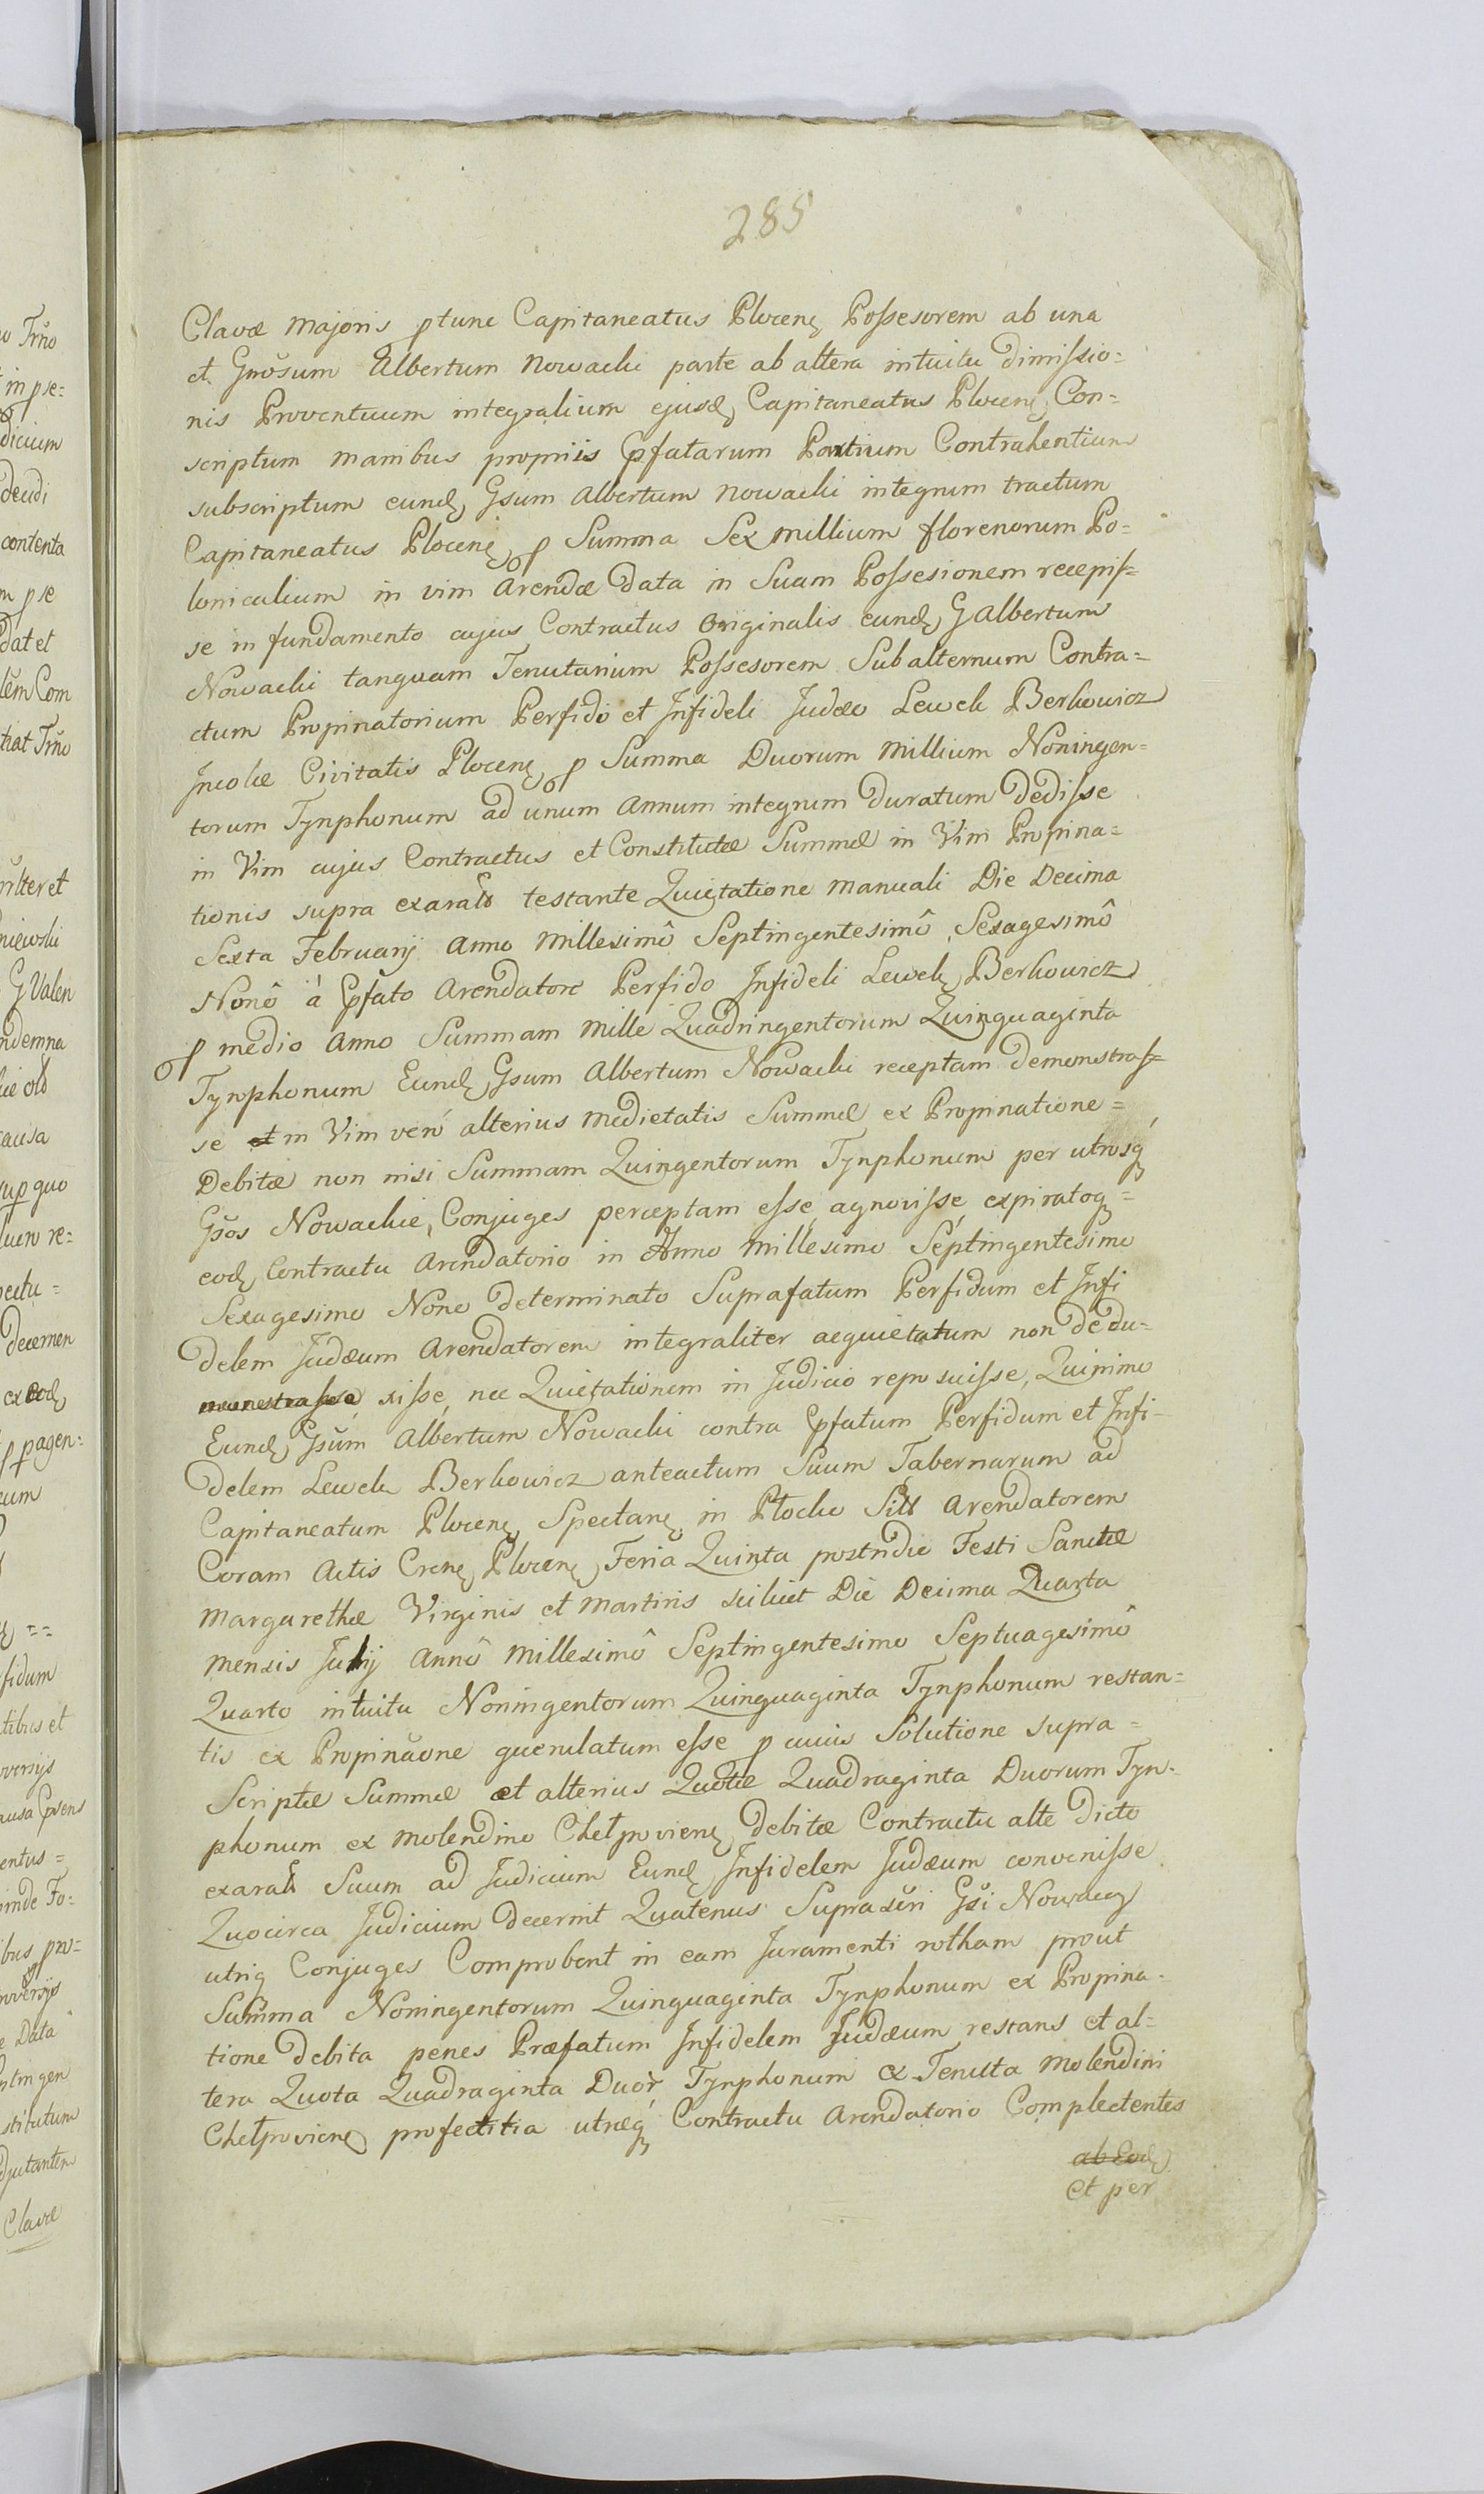 285
Clavæ Majoris ptunc Capitaneatus Plocenę Possesorem ab una
et Gnŏsum Albertum Nowacki parte ab altera intuitu dimissio=
nis Proventuum integralium ejusd, Capitaneatus Plocenę Con=
scriptum manibus propriis Pfatarum Partium Contrahentium
subscriptum eund, Gsum Albertum Nowacki integrum tractum
Capitaneatus Plocenę p Summa Sex Millium florenorum Po=
lonicalium in vim Arendæ data in Suam Possesionem recepis=
se in fundamento cujus Contractus Originalis eund, G Albertum
Nowacki tanquam Tenutarium Possesorem Subalternum Contra=
ctum Propinatorium Perfido et Infideli Judæo Lewek Berkowicz
Incolæ Civitatis Plocenę p Summa Duorum Millium Noningen=
torum Tynphonum ad unum Annum integrum duratum dedisse
in Vim cujus Contractus et Constitutæ Summæ in Vim Propina=
tionis supra exarato testante Quietatione manuali Die Decima
Sexta Februarij Anno Millesimô Septingentesimô Sexagesimô
Nonô à Pfato Arendatore Perfido Infideli Lewek Berkowicz
p medio Anno Summam Mille Quadringentorum Quinquaginta
Tynphonum Eund, Gsum Albertum Nowacki receptam demonstras=
se et in Vim verò alterius medietatis Summæ ex Propinatione=
Debitæ non nisi Summam Quingentorum Tynphonum per utrosq
Gsŏs Nowackie, Conjuges perceptam esse, agnovisse, expiratoq=
eod, Contractu Arendatorio in Anno Millesimo Septingentesimo
Sexagesimo Nono determinato Suprafatum Perfidum et Infi
delem Judæum Arendatorem integraliter aequietatum non dedu=
xisse, nec Quietationem in Judicio reposuisse, Quinimo
Eund, Gsŭm Albertum Nowacki contra Pfatum Perfidum et Infi-
delem Lewek Berkowicz anteactum Suum Tabernarum ad
Capitaneatum Plocenę Spectanę in Płocku Sitt Arendatorem
Coram Actis Crenę Plocenę Feria Quinta postridie Festi Sanctæ
Margarethæ Virginis et Martiris scilicet Die Decima Quarta
mensis Julij Annô Millesimô Septingentesimo Septuagesimô
Quarto intuitu Noningentorum Quinquaginta Tynphonum restan=
tis ex Propinăone querulatum esse p cuius Solutione supra=
Scriptæ Summæ et alterius Quotæ Quadraginta Duorum Tyn-
phonum ex Molendino Chełpovienę debitæ Contractu alte dicto
exarato Suum ad Judicium Eund, Infidelem Judæum convenisse
Quocirca Judicium decernit Quatenus Suprascri Gsi Nowaccy
utriq Conjuges Comprobent in eam Juramenti rotham prout
Summa Noningentorum Quinquaginta Tynphonum ex Propina-
tione debita penes Præfatum Infidelem Judæum restans et al=
tera Quota Quadraginta Duor Tynphonum ex Tenuta Molendini
Chełpovienę profectitia utræq Contractu Arendatorio Complectentes
ab Eod,
et per